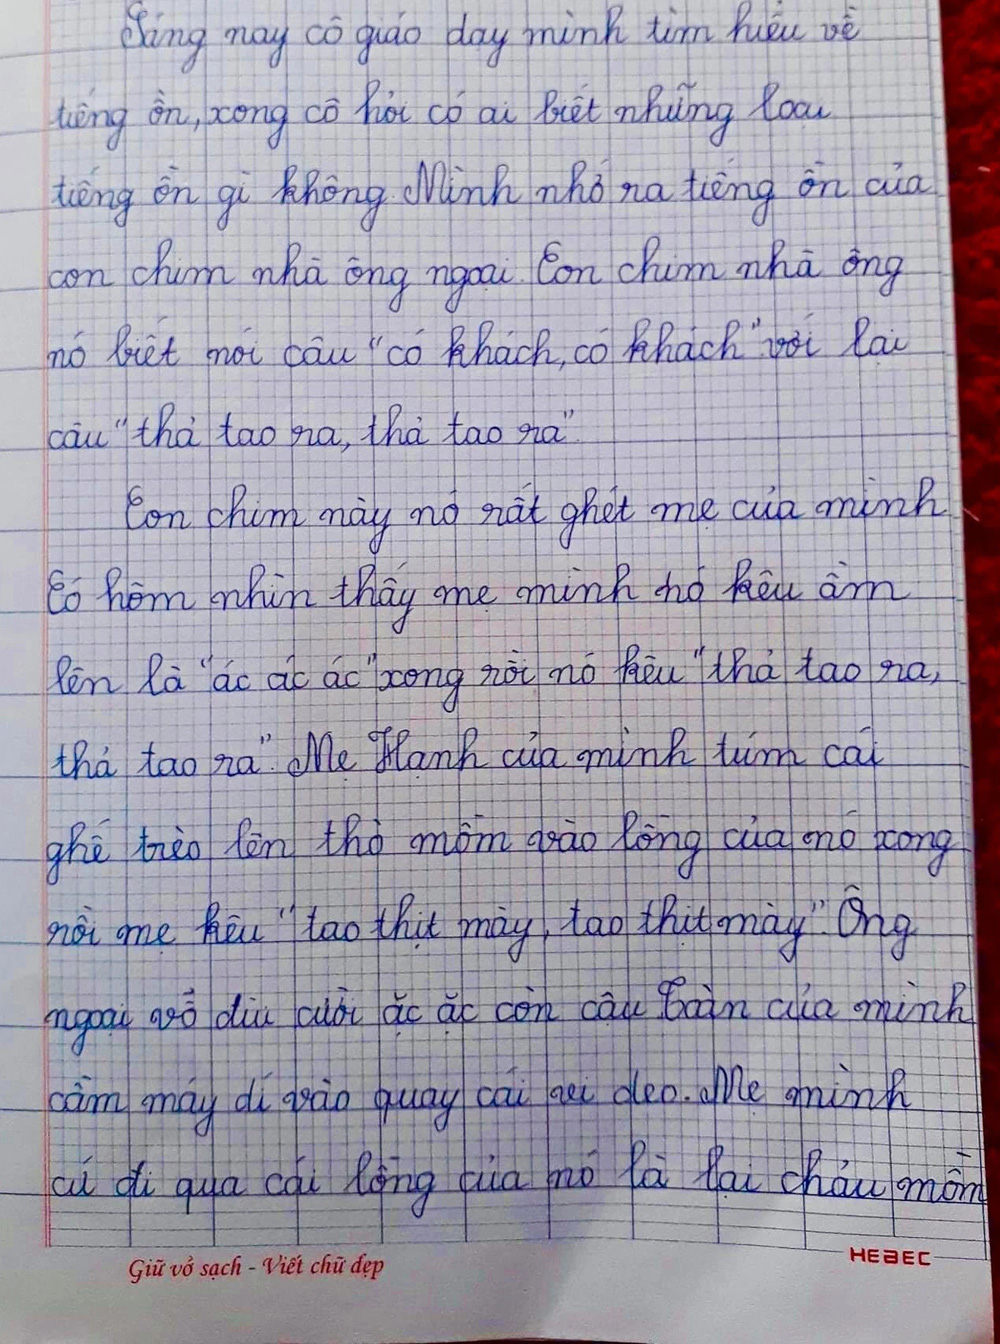 Sáng nay cô giáo dạy mình tìm hiểu về
tiếng ồn, xong cô hỏi có ai biết những loại
tiếng ồn gì không. Mình nhớ ra tiếng ồn của
con chim nhà ông ngoại. Con chim nhà ông
nó biết nói câu "có khách, có khách" với lại
câu "thả tao ra, thả tao ra"
Con chim này nó rất ghét mẹ của mình
Có hôm nhìn thấy mẹ mình nó kêu ầm
lên là "ác ác ác" xong rồi nó kêu "thả tao ra,
thả tao ra". Mẹ Hạnh của mình túm cái
ghế trèo lên thò mồm vào lồng của nó xong
rồi mẹ kêu "tao thịt mày, tao thịt mày". Ông
ngoại vỗ đùi cười ặc ặc còn cậu Toàn của mình
cầm máy dí vào quay cái
Mẹ mình
cứ đi qua cái lồng của nó là lại chảu mồm
Giữ vở sạch - Viết chữ đẹp
HEBEC